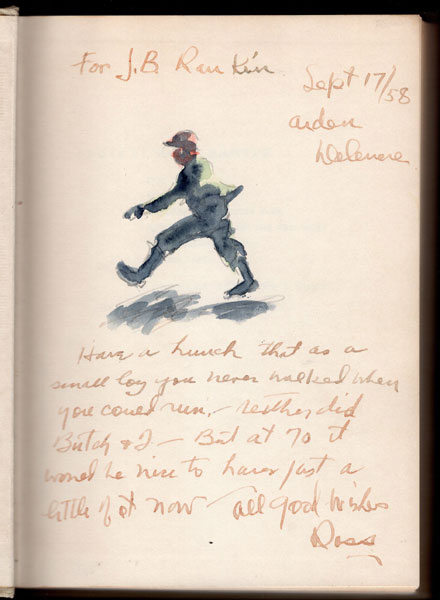 For J.B. Rankin
Sept 17/58
Arden
Delaware
Have a hunch that as a
small boy you never walked when
you could run,— neither did
Butch & I — But at 70 it
would be nice to have just a
little of it now — all good wishes
Ross